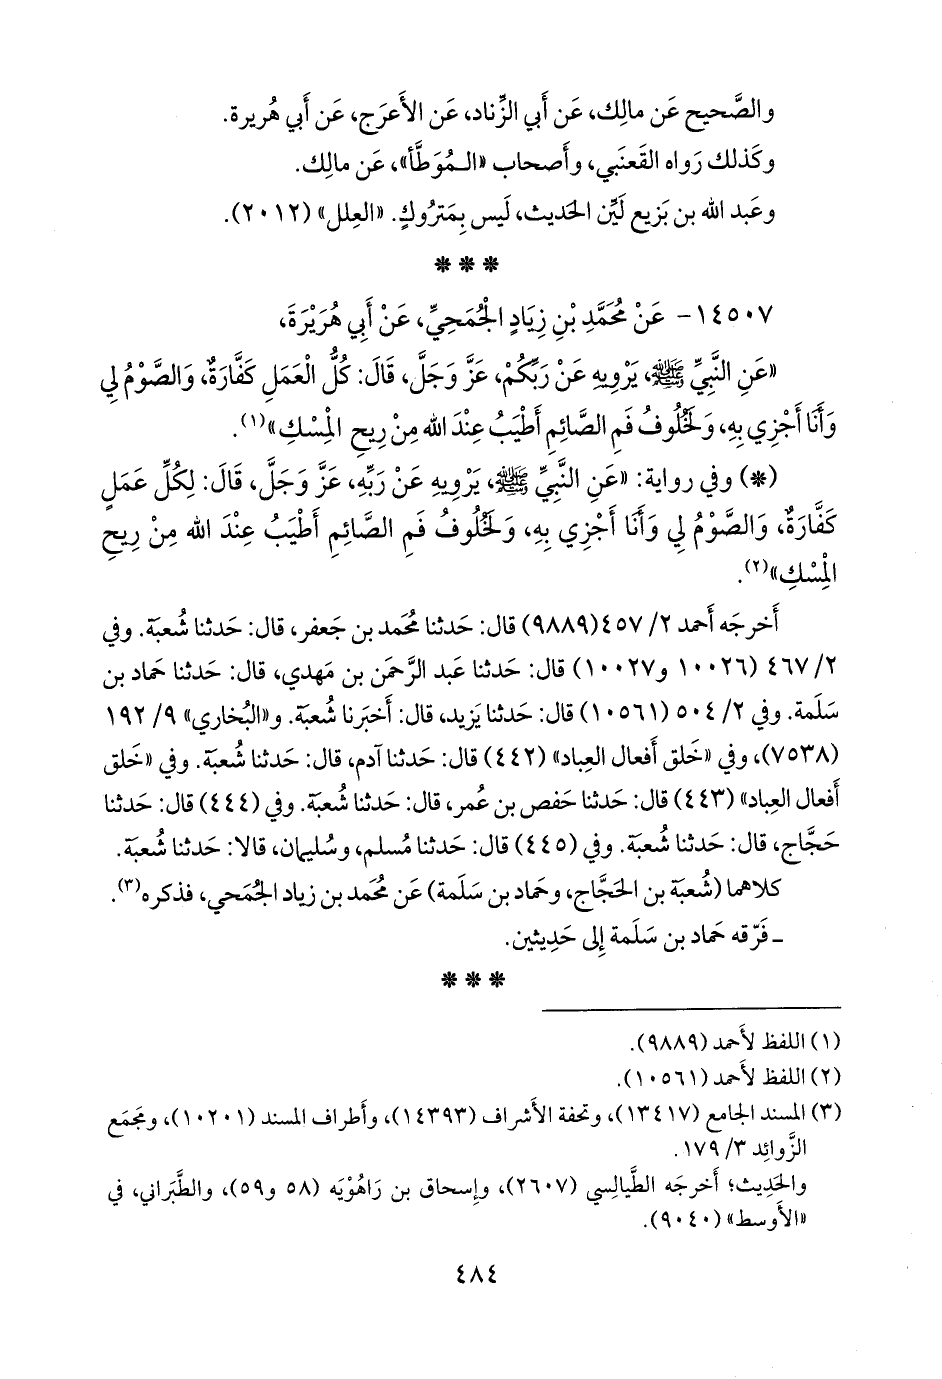 والصَّحيح عَن مالِك، عَن أَبي الزِّناد، عَن الأَعرَج، عَن أَبي هُريرة.
وكَذلك رَواه القَعنَبي، وأَصحاب «المُوَطَّأ»، عَن مالِك.
وعَبد الله بن بَزيع لَيِّن الحَديث، لَيس بِمَتروكٍ. «العِلل» (٢٠١٢).
* * *
١٤٥٠٧- عَنْ مُحَمَّدِ بْنِ زِيَادٍ الْجُمَحِيِّ، عَنْ أَبِي هُرَيْرَةَ،
«عَنِ النَّبِيِّ ﷺ، يَرْوِيهِ عَنْ رَبِّكُمْ، عَزَّ وَجَلَّ، قَالَ: كُلُّ الْعَمَلِ كَفَّارَةٌ، وَالصَّوْمُ لِي
وَأَنَا أَجْزِي بِهِ، وَلَخُلُوفُ فَمِ الصَّائِمِ أَطْيَبُ عِنْدَ الله مِنْ رِيحِ الْمِسْكِ»(١).
(*) وفي رواية: «عَنِ النَّبِيِّ ﷺ، يَرْوِيهِ عَنْ رَبِّهِ، عَزَّ وَجَلَّ، قَالَ: لِكُلِّ عَمَلٍ
كَفَّارَةٌ، وَالصَّوْمُ لِي وَأَنَا أَجْزِي بِهِ، وَلَخُلُوفُ فَمِ الصَّائِمِ أَطْيَبُ عِنْدَ الله مِنْ رِيحِ
الْمِسْكِ»(٢).
أَخرجَه أَحمد ٢/ ٤٥٧(٩٨٨٩) قال: حَدثنا مُحمد بن جَعفر، قال: حَدثنا شُعبة. وفي
٢/ ٤٦٧ (١٠٠٢٦ و١٠٠٢٧) قال: حَدثنا عَبد الرَّحمَن بن مَهدي، قال: حَدثنا حَماد بن
سَلَمة. وفي ٢/ ٥٠٤ (١٠٥٦١) قال: حَدثنا يَزيد، قال: أَخبَرنا شُعبة. و«البُخاري» ٩/ ١٩٢
(٧٥٣٨)، وفي «خَلق أَفعال العِباد» (٤٤٢) قال: حَدثنا آدم، قال: حَدثنا شُعبة. وفي «خَلق
أَفعال العِباد» (٤٤٣) قال: حَدثنا حَفص بن عُمر، قال: حَدثنا شُعبة. وفي (٤٤٤) قال: حَدثنا
حَجَّاج، قال: حَدثنا شُعبة. وفي (٤٤٥) قال: حَدثنا مُسلم، وسُليمان، قالا: حَدثنا شُعبة.
كلاهما (شُعبة بن الحَجَّاج، وحَماد بن سَلَمة) عَن مُحمد بن زياد الجُمَحي، فذكره(٣).
ـ فَرَّقه حَماد بن سَلَمة إِلى حَدِيثين.
* * *
(١) اللفظ لأَحمد (٩٨٨٩).
(٢) اللفظ لأَحمد (١٠٥٦١).
(٣) المسند الجامع (١٣٤١٧)، وتحفة الأَشراف (١٤٣٩٣)، وأَطراف المسند (١٠٢٠١)، ومَجمَع
الزَّوائِد ٣/ ١٧٩.
والحَدِيث؛ أَخرجَه الطَّيالسي (٢٦٠٧)، وإِسحاق بن رَاهُوْيَه (٥٨ و٥٩)، والطَّبَراني، في
«الأَوسط» (٩٠٤٠).
٤٨٤